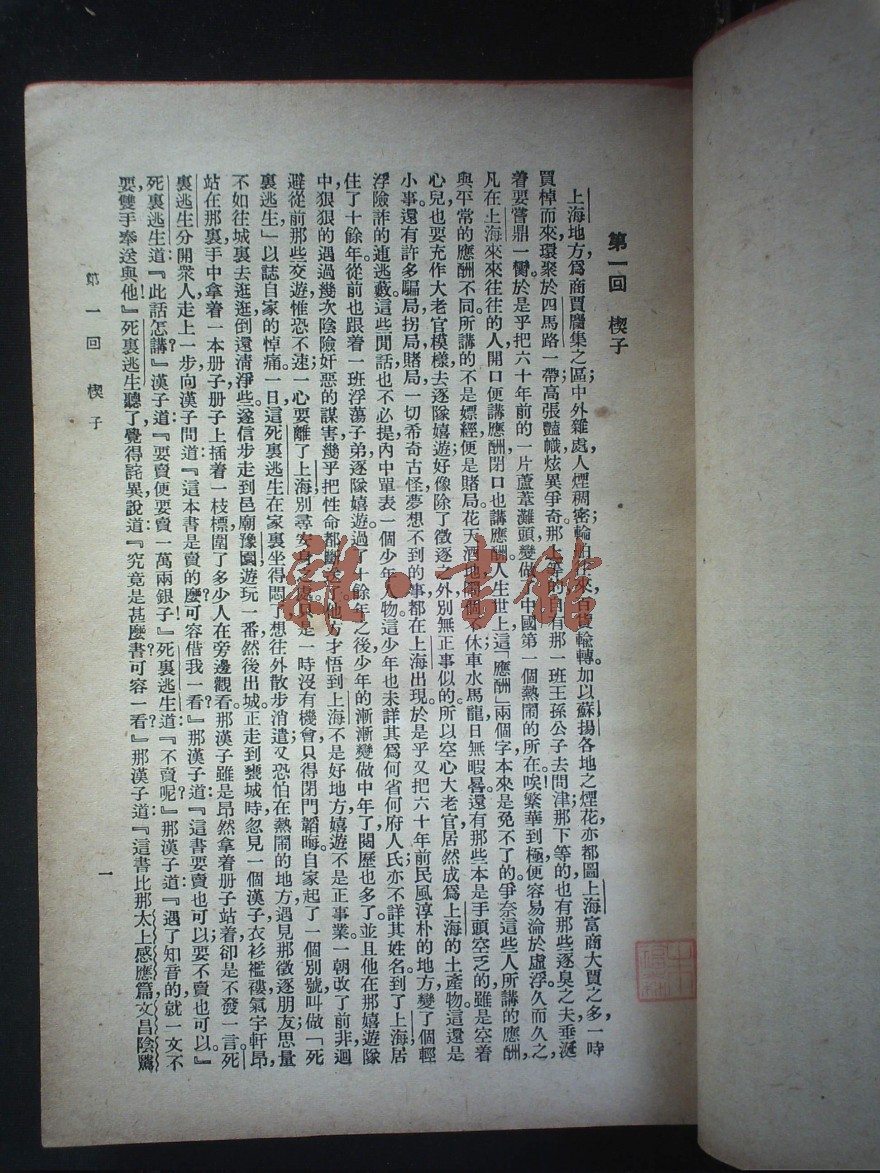 第一回　楔子
上海地方，爲商賈麕集之區；中外雜處，人煙稠密；輪舶往來，百貨輸轉。加以蘇揚各地之煙花，亦都圖上海富商大賈之多，一時
買棹而來，環聚於四馬路一帶，高張豔幟，炫異爭奇。那上等的，自有那一班王孫公子去問津；那下等的，也有那些逐臭之夫，垂涎
着要嘗鼎一臠。於是乎把六十年前的一片蘆葦灘頭，變做了中國第一個熱鬧的所在。唉！繁華到極，便容易淪於虛浮。久而久之，
凡在上海來來往往的人，開口便講應酬，閉口也講應酬。人生世上，這「應酬」兩個字，本來是免不了的。爭奈這些人所講的應酬，
與平常的應酬不同。所講的不是嫖經，便是賭局，花天酒地，鬧個不休，車水馬龍，日無暇晷。還有那些本是手頭空乏的，雖是空着
心兒，也要充作大老官模樣，去逐隊嬉遊，好像除了徵逐之外，別無正事似的。所以空心大老官，居然成爲上海的土產物。這還是
小事。還有許多騙局，拐局，賭局，一切希奇古怪，夢想不到的事，都在上海出現。於是乎又把六十年前民風淳朴的地方，變了個輕
浮險詐的逋逃藪。這些閒話，也不必提，內中單表一個少年人物。這少年也未詳其爲何省何府人氏，亦不詳其姓名。到了上海，居
住了十餘年。從前也跟着一班浮蕩子弟，逐隊嬉遊。過了十餘年之後，少年的漸漸變做中年了，閱歷也多了。並且他在那嬉遊隊
中，狠狠的遇過幾次陰險奸惡的謀害，幾乎把性命都斷送了。他方才悟到上海不是好地方，嬉遊不是正事業，一朝改了前非，迴
避從前那些交遊，惟恐不速，一心要離了上海，別尋安身之處。只是一時沒有機會，只得閉門韜晦，自家起了一個別號，叫做「死
裏逃生」，以誌自家的悼痛。一日，這死裏逃生在家裏坐得悶了，想往外散步消遣，又恐怕在熱鬧的地方，遇見那徵逐朋友。思量
不如往城裏去逛逛，倒還清淨些。遂信步走到邑廟豫園，遊玩一番，然後出城。正走到甕城時，忽見一個漢子，衣衫襤褸，氣宇軒昂，
站在那裏，手中拿着一本册子，册子上插着一枝標，圍了多少人在旁邊觀看。那漢子雖是昂然拿着册子站着，卻是不發一言。死
裏逃生分開衆人，走上一步，向漢子問道：『這本書是賣的麼？可容借我一看？』那漢子道：『這書要賣也可以，要不賣也可以。』
死裏逃生道：『此話怎講？』漢子道：『要賣便要賣一萬兩銀子！』死裏逃生道：『不賣呢？』那漢子道：『遇了知音的，就一文不
要，雙手奉送與他！』死裏逃生聽了，覺得詫異，說道：『究竟是甚麼書，可容一看？』那漢子道：『這書比那太上感應篇，文昌陰騭
第一回　楔子
一
雜·書館